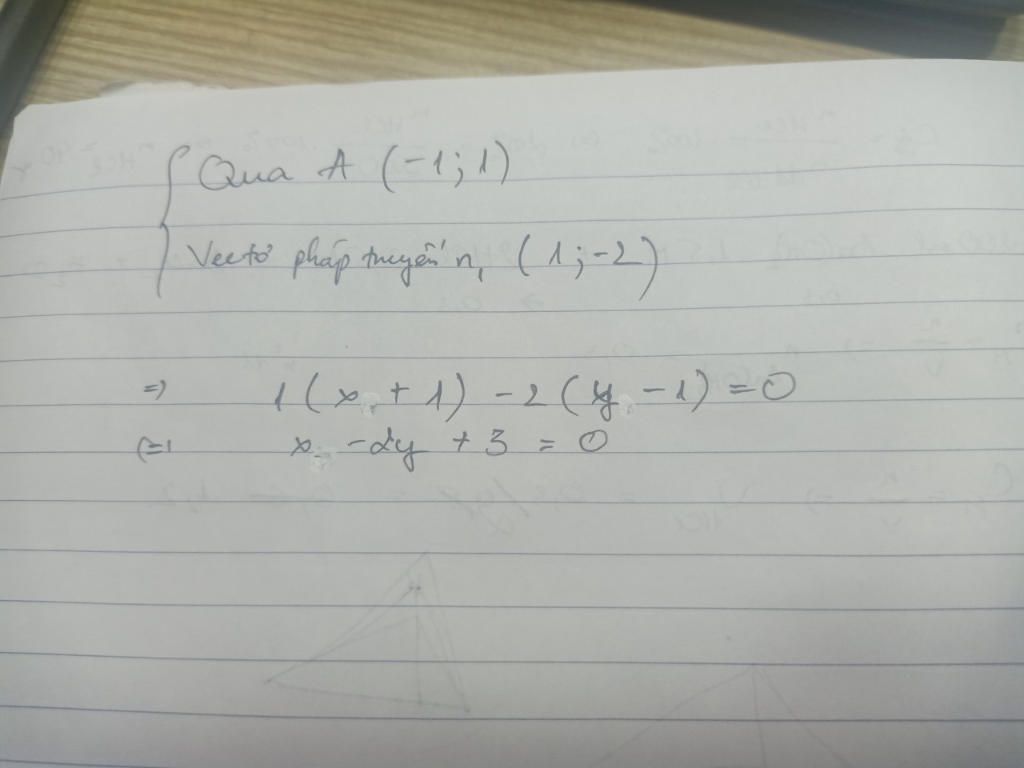 Qua A (-1; 1)
Vectơ pháp tuyến n, (1; -2)
=> 1(x + 1) - 2(y - 1) = 0
(=) x - 2y + 3 = 0